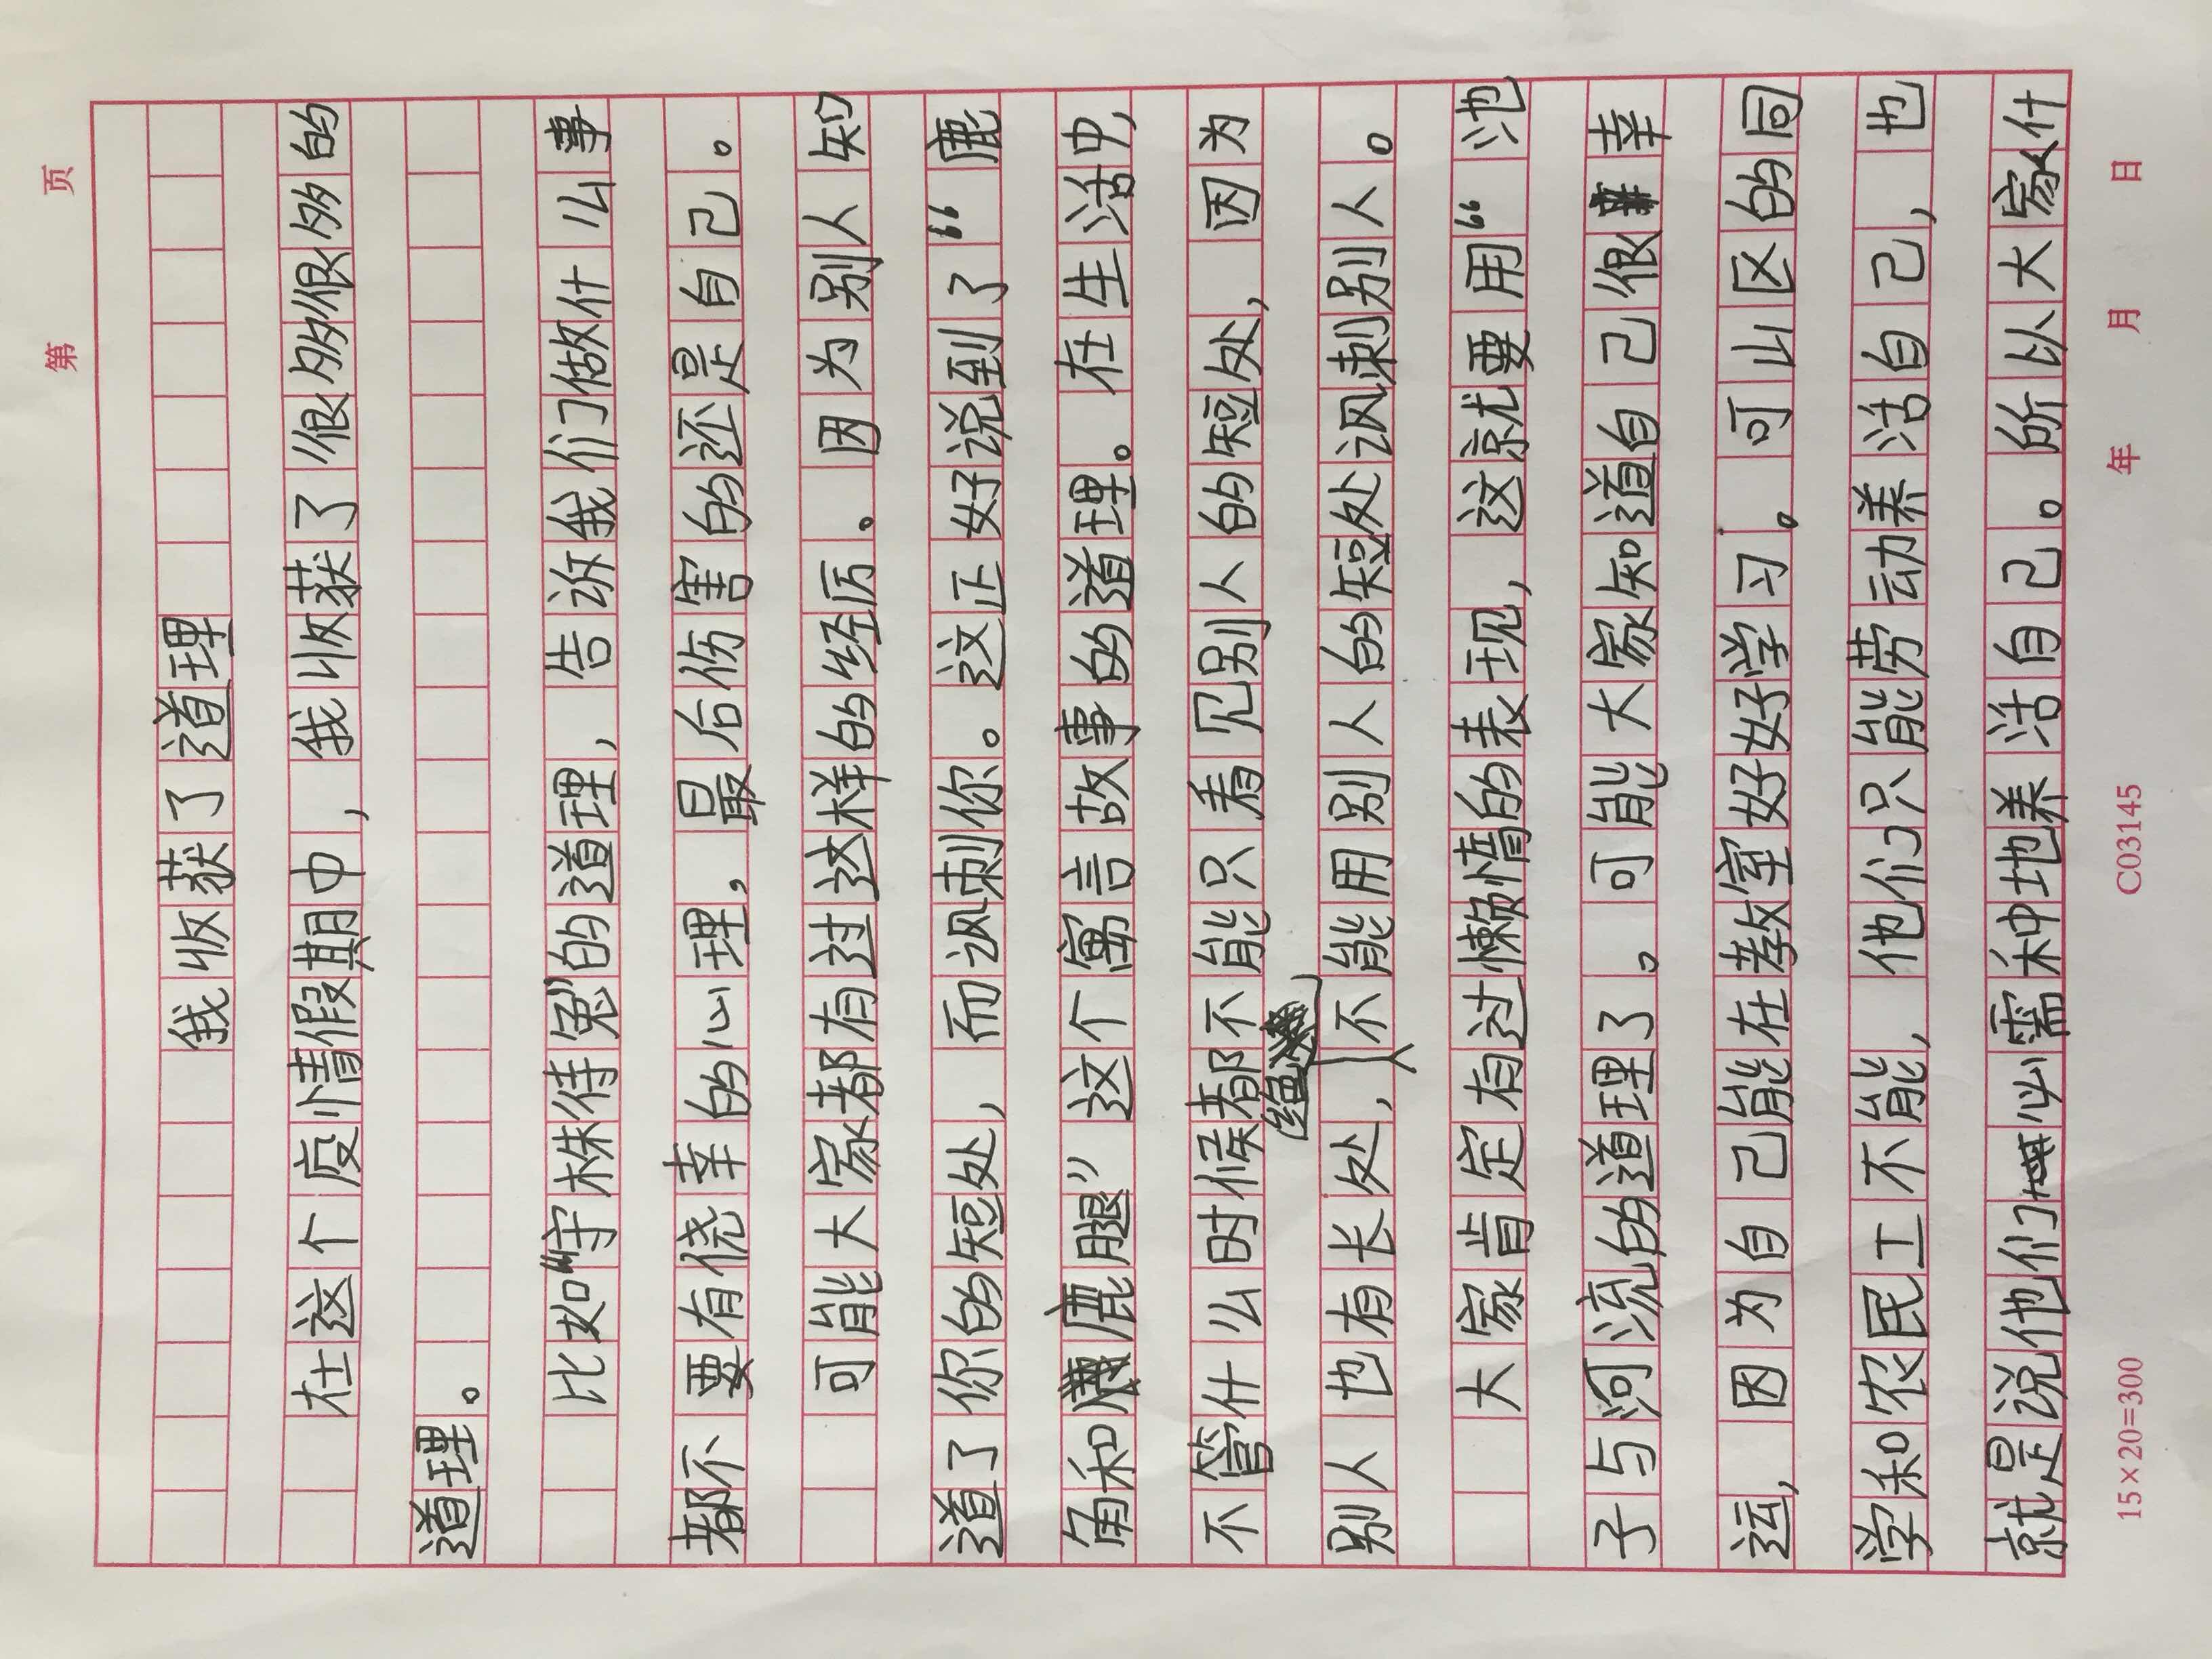 第 页
我收获了道理
在这个疫情假期中，我收获了很多很多的
道理。
比如“守株待兔”的道理，告诉我们做什么事
都不要有侥幸的心理，最后伤害的还是自己。
可能大家都有过这样的经历。因为别人知
道了你的短处，而讽刺你。这正好说到了“鹿
角和鹿腿”这个寓言故事的道理。在生活中，
不管什么时候都不能只看见别人的短处，因为
别人也有长处，绝不能用别人的短处讽刺别人。
大家肯定有过懒惰的表现，这就要用“池
子与河流的道理了。可能大家知道自己很幸
运，因为自己能在教室好好学习。可山区的同
学和农民工不能，他们只能劳动养活自己，也
就是说他们必需种地养活自己。所以大家什
15×20=300 C03145 年 月 日